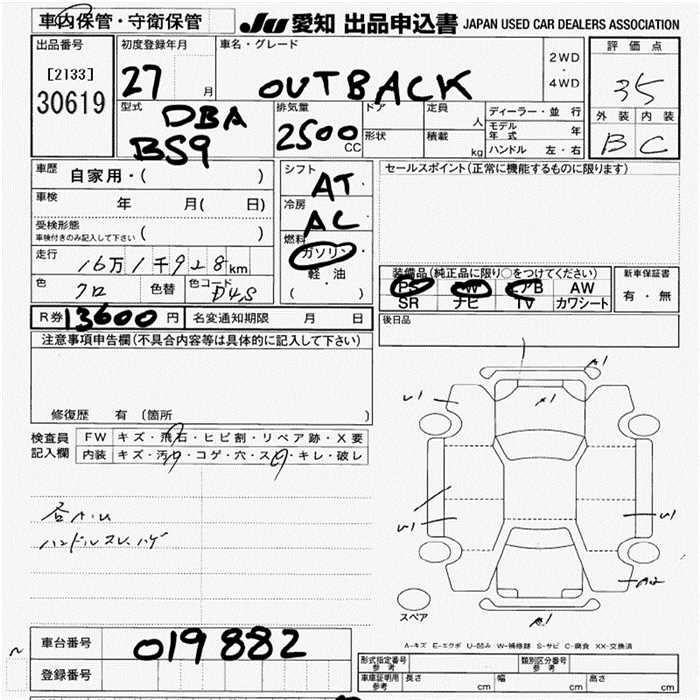 車内保管・守衛保管
JU 愛知 出品申込書 JAPAN USED CAR DEALERS ASSOCIATION
出品番号
[2133]
30619
初度登録年月
27 月
車名・グレード
OUTBACK
2WD
・
4WD
評価点
35
外装 内装
B C
型式
DBA
BS9
排気量
2500 CC
ドア
形状
定員 人
積載 kg
ディーラー・並行
モデル年式 年
ハンドル 左・右
車歴
自家用・( )
車検
年 月( 日)
受検形態
車検付きのみ記入して下さい ( )
走行
16万1千928km
色
クロ
色替
色コード
D4S
シフト
AT
冷房
AC
燃料
ガソリン・
軽・油
( )
セールスポイント(正常に機能するものに限ります)
装備品(純正品に限り○をつけてください)
PS PW エアB AW
SR ナビ TV カワシート
新車保証書
有・無
R券 13600 円
名変通知期限 月 日
後日品
注意事項申告欄(不具合内容等は具体的に記入して下さい)
修復歴 有 〔箇所 〕
検査員
記入欄
FW キズ・飛石・ヒビ割・リペア跡・X要
内装 キズ・汚れ・コゲ・穴・スレ・キレ・破レ
各A.U
ハンドルスレ、ハゲ
A1
U1
A1
U1
U1
A2
A1
スペア
A-キズ E-エクボ U-凹み W-補修跡 S-サビ C-腐食 XX-交換済
車台番号
019882
登録番号
型式指定番号
参考
類別区分番号
参考
車庫証明用
参考
長さ cm
幅 cm
高さ cm